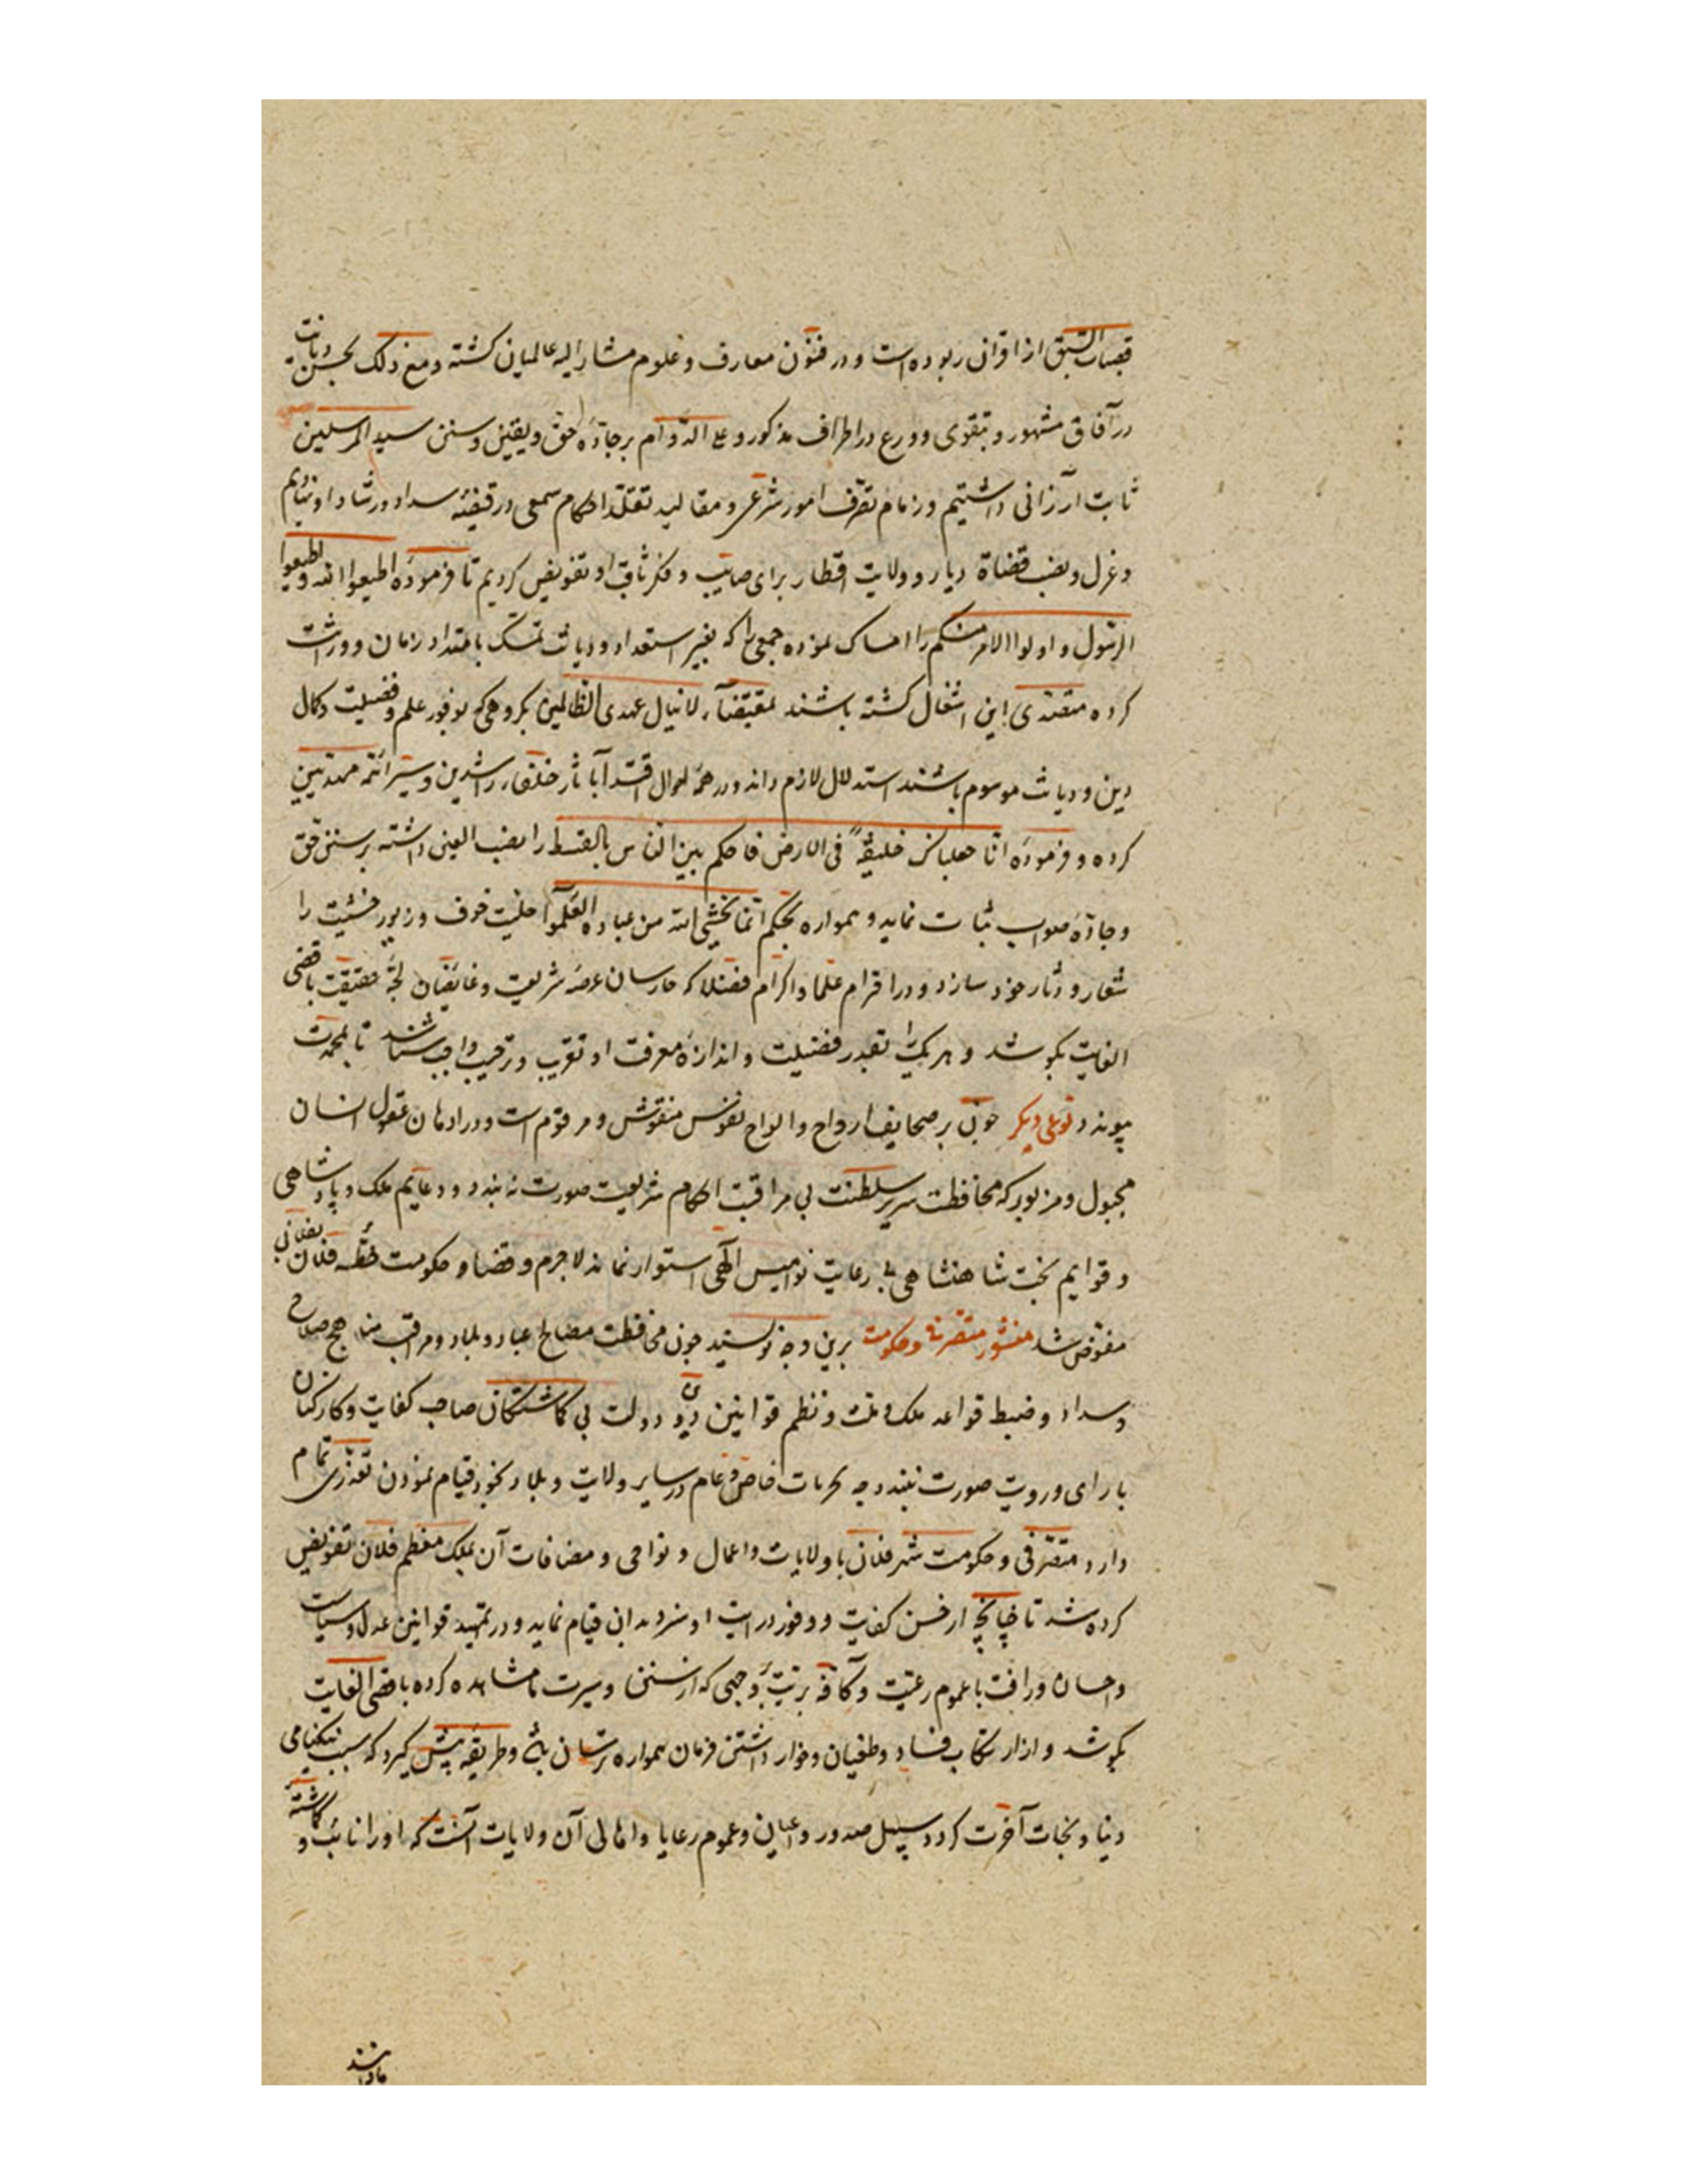 قصبات السبق از اقران ربوده است و در فنون معارف و علوم مشار الیه عالمیان کشته و مع ذلک بحسن دیانت
در آفاق مشهور و بتقوی و ورع در اطراف مذکور و علی الدوام بر جادّه حق و یقین و سنن سید المرسلین
ثابت ارزانی داشتیم و زمام تصرف امور شرعی و مقالید تقلد احکام سمعی در قبضه سداد و رشاد او نهادیم
و عزل و نصب قضاة دیار و ولایت اقطار برای صایب و فکر ثاقب او تفویض کردیم تا فرموده اطیعوا الله و اطیعوا
الرسول و اولوا الامر منکم را امساک نموده جمعی را که بغیر استعداد و دیانت تمسک بامتداد زمان و وراثت
کرده متصدی این اشغال کشته باشند بمقتضاء لاینال عهدی الظالمین بکروهی که بوفور علم و فضیلت و کمال
دین و دیانت موسوم باشند استدلال لازم داند و در همه احوال اقتدا بآثار خلفاء راشدین و سیر ائمه مهتدیین
کرده و فرموده انا جعلناک خلیفة فی الارض فاحکم بین الناس بالقسط را نصب العین داشته بر سنن حق
و جادّه صواب ثبات نماید و همواره بحکم انما یخشی الله من عباده العلموا حلیت خوف و زیور خشیت را
شعار و دثار خود سازد و در احترام علما و اکرام فضلا که حارسان عرصه شریعت و غایصان لجه حقیقت باقصی
الغایت بکوشد و هر یک را بقدر فضیلت و اندازه معرفت او تقریب و ترحیب واجب شناسد تا بمحمدت
پیوندد نوعی دیکر چون بر صحایف ارواح و الواح نفوس منقوش و مرقوم است و در اذهان عقول انسان
مجبول و مزبور که محافظت سریر سلطنت بی مراقبت احکام شریعت صورت نه بندد و دعایم ملک و پادشاهی
و قوایم تخت شاهنشاهی بی رعایت نوامیس الهی استوار نماند لاجرم و قضا و حکومت خطه فلان بفلانی
مفوض شد منشور متصرفی و حکومت برین وجه نویسند چون محافظت مصالح عباد و بلاد و مراقبت مناهج صلاح
و سداد و ضبط قواعد ملک و ملت و نظم قوانین دین و دولت بی کماشتکان صاحب کفایت و کارکنان
با رای و رویت صورت نبندد چه بحربات خاص و عام در سایر ولایت و بلاد بخود قیام نمودن تعذری تمام
دارد متصرفی و حکومت شهر فلان با ولایات و اعمال و نواحی و مضافات آن بملک معظم فلان تفویض
کرده شد تا چنانچه از حسن کفایت و وفور درایت او سزد بدان قیام نماید و در تمهید قوانین عدل و سیاست
و احسان و رافت با عموم رعیت و کافه بریت بوجهی که از سنن و سیرت ما مشاهده کرده باقصی الغایت
بکوشد و از ارتکاب فساد و طغیان و خوار داشتن فرمان همواره ترسان باشد و طریقه پیش کیرد که سبب نیکنامی
دنیا و نجات آخرت کردد سبیل صدور و اعیان و عموم رعایا و اهالی آن ولایات آنست که او را نایب و کماشته
ما دانند